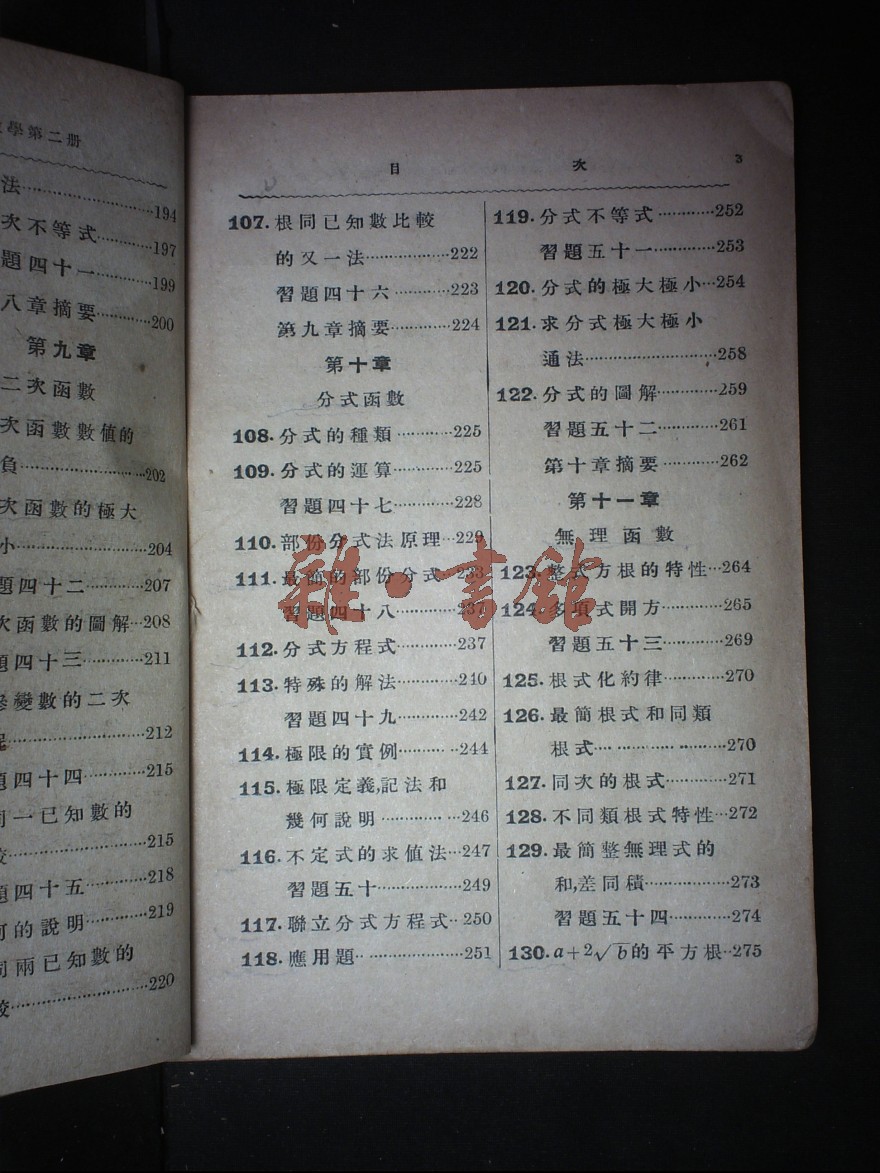 學第二册
法……194
次不等式……197
題四十一……199
八章摘要……200
第九章
二次函數
次函數數値的
負……202
次函數的極大
小……204
題四十二……207
次函數的圖解…208
題四十三……211
變數的二次
……212
題四十四……215
同一已知數的
較……215
題四十五……218
何的說明……219
同兩已知數的
較……220
目 次 3
107.根同已知數比較
的又一法……222
習題四十六……223
第九章摘要……224
第十章
分式函數
108.分式的種類……225
109.分式的運算……225
習題四十七……228
110.部份分式法原理…229
111.最簡的部份分式…233
習題四十八……237
112.分式方程式……237
113.特殊的解法……240
習題四十九……242
114.極限的實例……244
115.極限定義,記法和
幾何說明……246
116.不定式的求値法…247
習題五十……249
117.聯立分式方程式…250
118.應用題……251
119.分式不等式……252
習題五十一……253
120.分式的極大極小…254
121.求分式極大極小
通法……258
122.分式的圖解……259
習題五十二……261
第十章摘要……262
第十一章
無理函數
123.整式方根的特性…264
124.多項式開方……265
習題五十三……269
125.根式化約律……270
126.最簡根式和同類
根式……270
127.同次的根式……271
128.不同類根式特性…272
129.最簡整無理式的
和,差同積……273
習題五十四……274
130.a+2√b的平方根…275
雜·書館